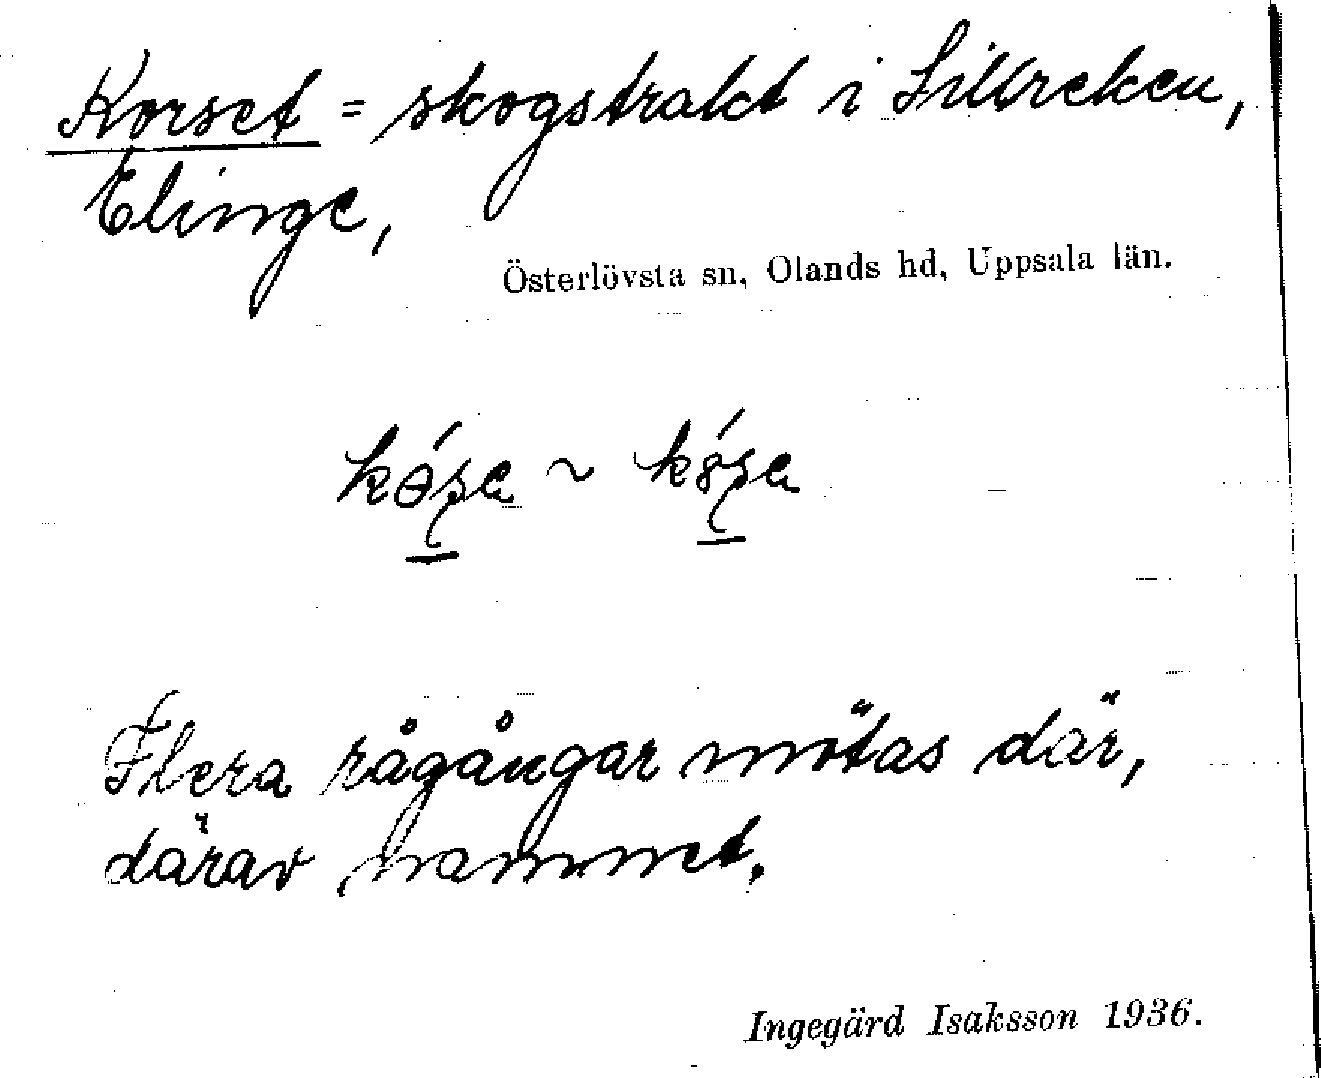 Korset = skogstrakt i Sillreken,
Elinge,
Österlövsta sn, Olands hd, Uppsala län.
~
Flera rågångar mötas där,
därav namnet.
Ingegärd Isaksson 1936.